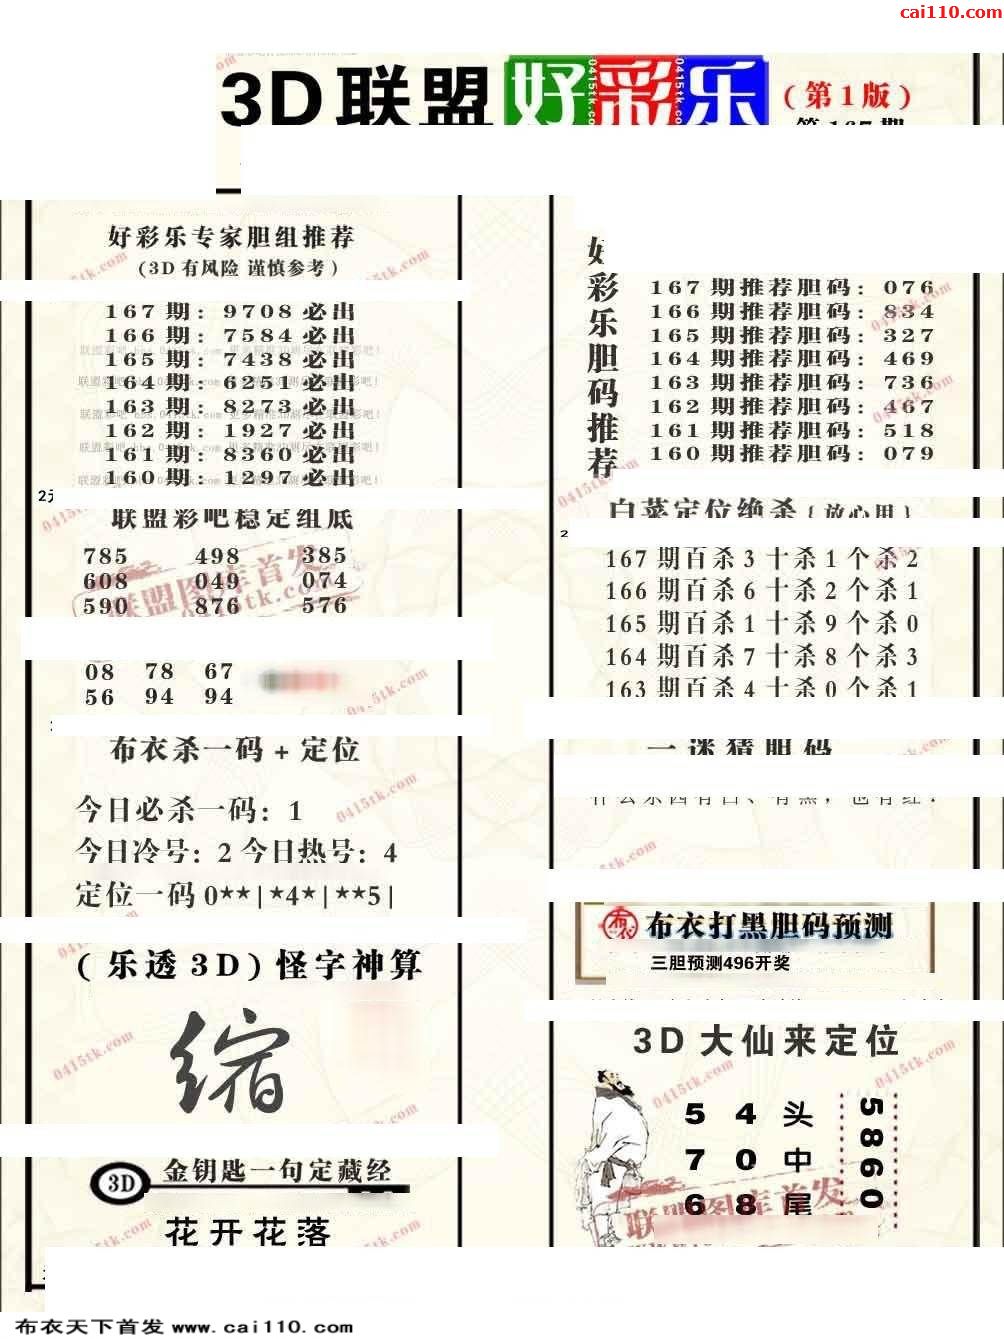 cai110.com
3D联盟好彩乐(第1版)
第167期
好彩乐专家胆组推荐
(3D有风险 谨慎参考)
167期: 9708必出
166期: 7584必出
165期: 7438必出
164期: 6251必出
163期: 8273必出
162期: 1927必出
161期: 8360必出
160期: 1297必出
联盟彩吧稳定组底
785 498 385
608 049 074
590 876 576
08 78 67
56 94 94
布衣杀一码+定位
今日必杀一码: 1
今日冷号: 2 今日热号: 4
定位一码 0**|*4*|**5|
(乐透3D)怪字神算
缩
3D 金钥匙一句定藏经
花开花落
好彩乐胆码推荐
167期推荐胆码: 076
166期推荐胆码: 834
165期推荐胆码: 327
164期推荐胆码: 469
163期推荐胆码: 736
162期推荐胆码: 467
161期推荐胆码: 518
160期推荐胆码: 079
白菜定位绝杀(放心用)
167期百杀3十杀1个杀2
166期百杀6十杀2个杀1
165期百杀1十杀9个杀0
164期百杀7十杀8个杀3
163期百杀4十杀0个杀1
一迷猜胆码
布衣 布衣打黑胆码预测
三胆预测496开奖
3D大仙来定位
5 4 头
7 0 中
6 8 尾
5860
联盟图库首发
0415tk.com
布衣天下首发 www.cai110.com